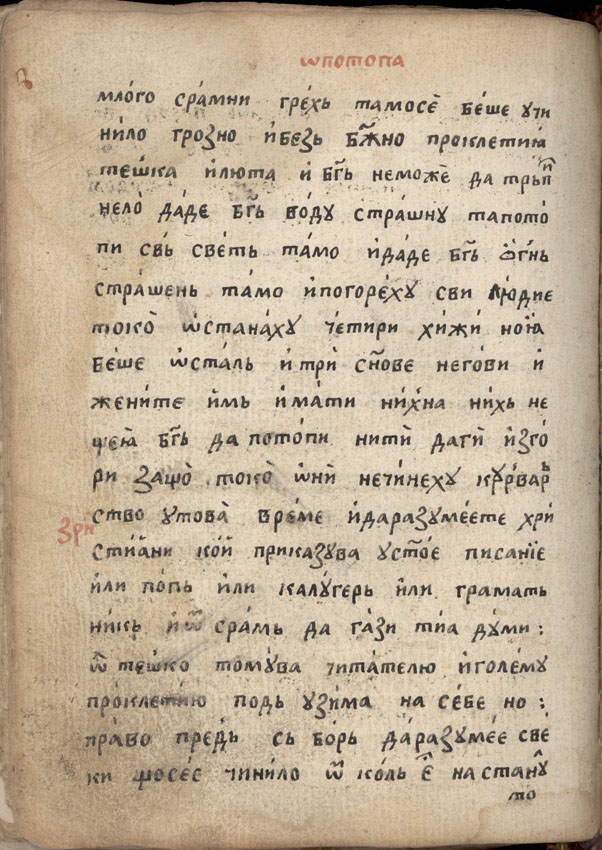 ѡпотопа
мло́го сра́мни гре́хь тамосѐ бе́ше учи
ни́ло грозно и҆безь бж҃но проклетиꙗ
теш́ка и҆люта и҆ бг҃ь неможѐ да трьпи
нело̀ да́де бг҃ь во́ду стра́шну тапото́
пи свь́ светь та́мо и҆даде бг҃ь ѻ҆́гнь
стра́шень та́мо и҆погоре́ху сви лю́дие
токо̀ ѡ҆стана́ху че́тири хи́жи ноꙗ
бе́ше ѡ҆сталь и҆три̇̀ сн҃ове негови и҆
жени́те и҆мь и҆ма́ти ни́хна нихь не
щеꙗ̀ бг҃ь да пото́пи нити̇̀ даги̇̀ и҆зго́
ри защо̀ токо̀ ѡ҆ни̇̀ нечи́неху курварь
ство утова̀ вре́ме и҆даразуме́ете хри
стиꙗ́ни кои̇̀ приказува усто́е писанїе
и҆ли по́пь и҆ли калу́герь и҆ли грамать
ни́кь и҆ѿ сра́мь да га́зи тиа ду́ми :
ѿ те́шко тому́ва чита́телю и҆голе́му
про́клетию подь узи́ма на се́бе но :
пра́во предь сь борь да́разуме́е све́
ки щосее́ чини́ло ѿ коль е҆ настану
то
зри